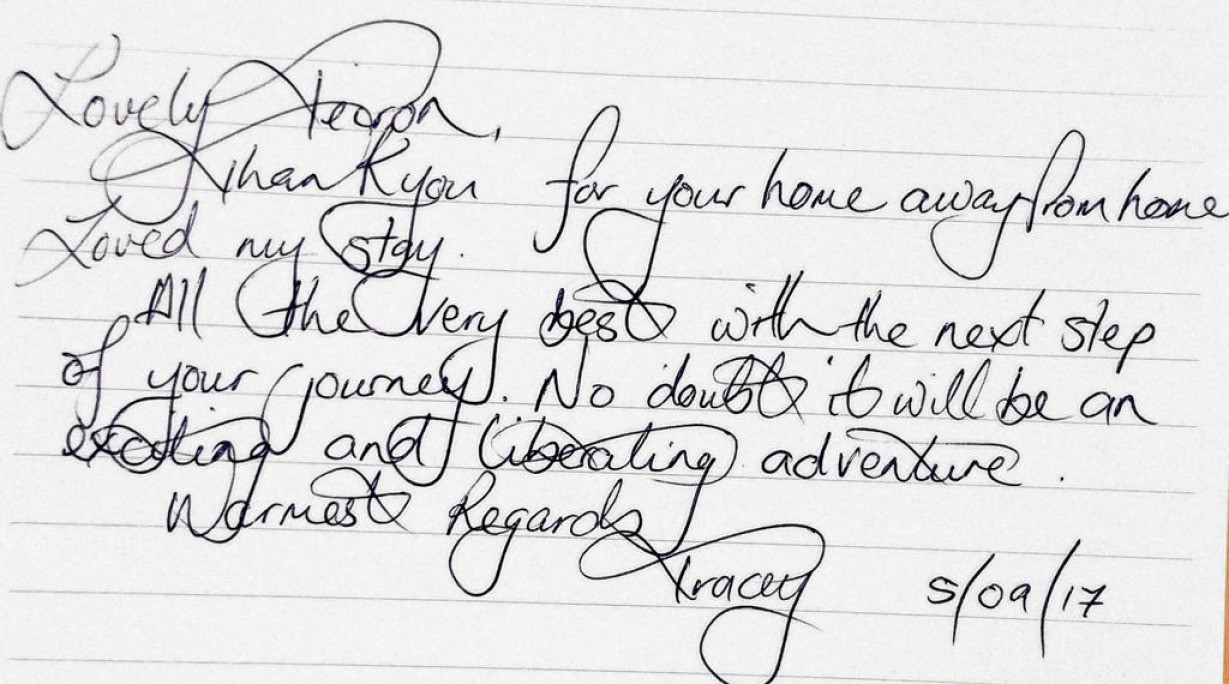 Lovely
Thankyou for your home away from home
Loved my stay.
All the very best with the next step
of your journey. No doubt it will be an
exciting and liberating adventure.
Warmest Regards
Tracey 5/09/17